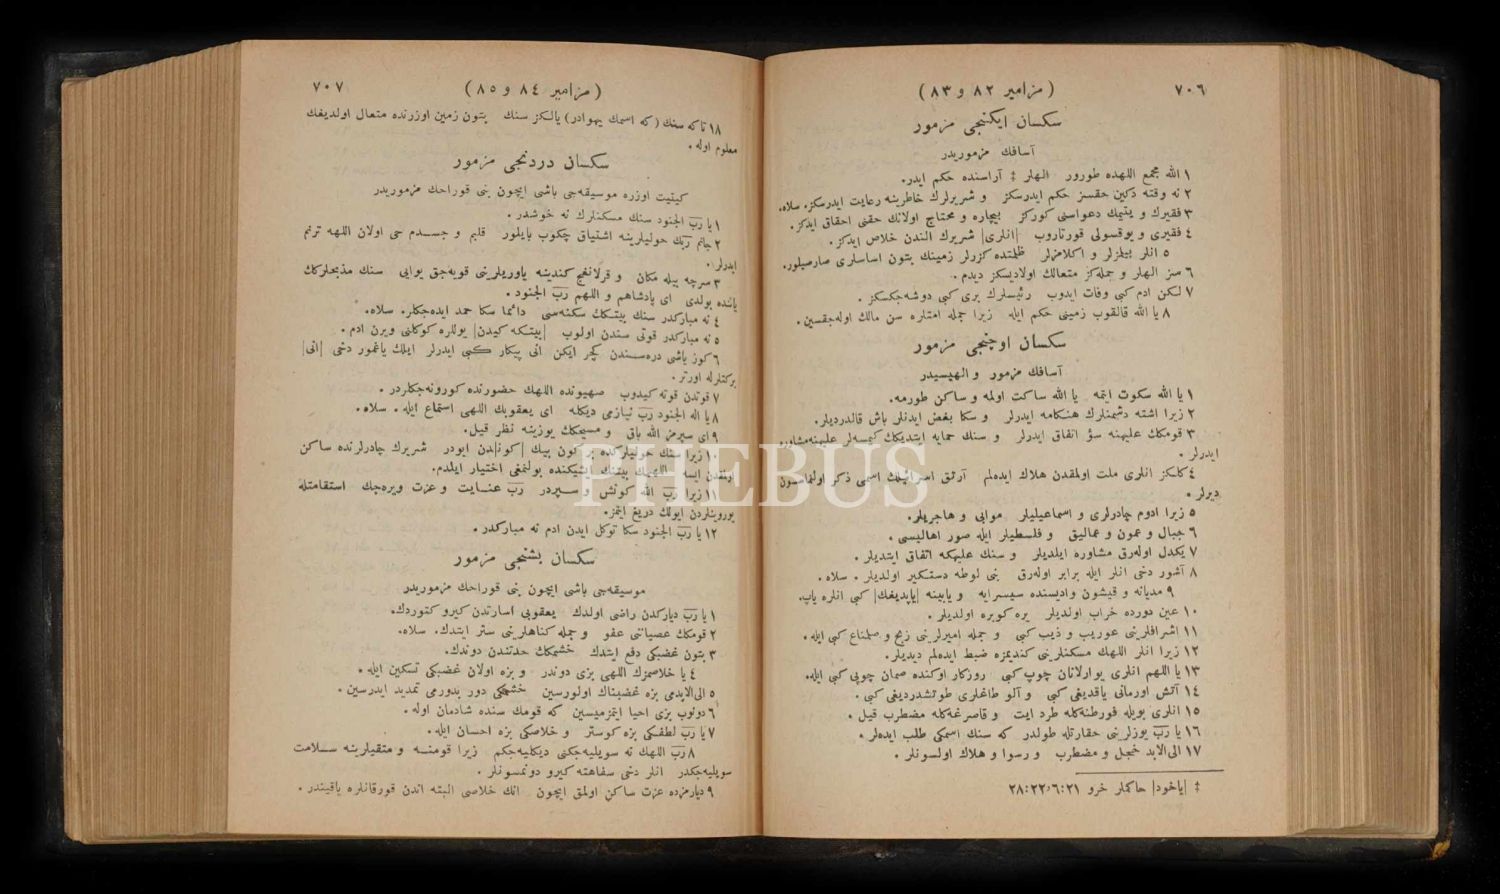 ٧٠٦
( مزامیر ٨٢ و ٨٣ )
سکسان ایکنجی مزمور
آسافك مزموریدر
١ الله مجمع اللهده طورور الهلر ‡ آراسنده حکم ایدر.
٢ نه وقته دکین حقسز حکم ایدرسکز و شریرلرك خاطرینه رعایت ایدرسکز. سلاه.
٣ فقیرك و یتیمك دعواسنی کورکز بیچاره و محتاج اولانك حقنی احقاق ایدکز.
٤ فقیری و یوقسولی قورتاروب |انلری| شریرك الندن خلاص ایدکز.
٥ انلر بیلمزلر و اکلامزلر ظلمتده کزرلر زمینك بتون اساسلری صارصیلور.
٦ سز الهلر و جمله‌کز متعالك اولادیسکز دیدم.
٧ لکن ادم کبی وفات ایدوب رئیسلرك بری کبی دوشه‌جکسکز.
٨ یا الله قالقوب زمینی حکم ایله زیرا جمله امتلره سن مالك اوله‌جقسین.
سکسان اوچنجی مزمور
آسافك مزمور و الهیسیدر
١ یا الله سکوت ایتمه یا الله ساکت اولمه و ساکن طورمه.
٢ زیرا اشته دشمنلرك هنکامه ایدرلر و سکا بغض ایدنلر باش قالدردیلر.
٣ قومکك علیهنه سؤ اتفاق ایدرلر و سنك حمایه ایتدیکك کیمسه‌لر علیهنه مشاوره
ایدرلر.
٤ کلکز انلری ملت اولمقدن هلاك ایده‌لم آرتق اسرائیلك اسمی ذکر اولنماسون
دیرلر.
٥ زیرا ادوم چادرلری و اسماعیلیلر موابی و هاجریلر.
٦ جبال و عمون و عمالیق و فلسطیلر ایله صور اهالیسی.
٧ یکدل اوله‌رق مشاوره ایلدیلر و سنك علیهکه اتفاق ایتدیلر.
٨ آشور دخی انلر ایله برابر اوله‌رق بنی لوطه دستکیر اولدیلر. سلاه.
٩ مدیانه و قیشون وادیسنده سیسرایه و یابینه |یاپدیغك| کبی انلره یاپ.
١٠ عین دورده خراب اولدیلر یره کوبره اولدیلر.
١١ اشرافلرینی عوریب و ذیب کبی و جمله امیرلرینی زبح و صلمناع کبی ایله.
١٢ زیرا انلر اللهك مسکنلرینی کندیمزه ضبط ایده‌لم دیدیلر.
١٣ یا اللهم انلری یوارلانان چوپ کبی روزکار اوکنده صمان چوپی کبی ایله.
١٤ آتش اورمانی یاقدیغی کبی و آلو طاغلری طوتشدردیغی کبی.
١٥ انلری بویله فورطنه‌کله طرد ایت و قاصرغه‌کله مضطرب قیل.
١٦ یا رب یوزلرینی حقارتله طولدر که سنك اسمکی طلب ایده‌لر.
١٧ الی‌الابد خجل و مضطرب و رسوا و هلاك اولسونلر.
‡ |یاخود| حاکملر خرو ٢١:٦، ٢٢:٢٨
٧٠٧
( مزامیر ٨٤ و ٨٥ )
١٨ تا که سنك (که اسمك یهوادر) یالکز سنك بتون زمین اوزرنده متعال اولدیغك
معلوم اوله.
سکسان دردنجی مزمور
کیتیت اوزره موسیقه‌جی باشی ایچون بنی قوراحك مزموریدر
١ یا رب الجنود سنك مسکنلرك نه خوشدر.
٢ جانم ربك حولیلرینه اشتیاق چکوب بایلور قلبم و جسدم حی اولان اللهه ترنم
ایدرلر.
٣ سرچه بیله مکان و قرلانغج کندینه یاوریلرینی قویه‌جق یوایی سنك مذبحلرکك
یاننده بولدی ای پادشاهم و اللهم رب الجنود.
٤ نه مبارکدر سنك بیتکك سکنه‌سی دائما سکا حمد ایده‌جکلر. سلاه.
٥ نه مبارکدر قوتی سندن اولوب |بیتکه کیدن| یوللره کوکلنی ویرن ادم.
٦ کوز یاشی دره‌سندن کچر ایکن انی پیکار کبی ایدرلر ایلك یاغمور دخی |انی|
برکتلرله اورتر.
٧ قوتدن قوته کیدوب صهیونده اللهك حضورنده کورونه‌جکلردر.
٨ یا اله الجنود رب نیازمی دیکله ای یعقوبك اللهی استماع ایله. سلاه.
٩ ای سپرمز الله باق و مسیحکك یوزینه نظر قیل.
١٠ زیرا سنك حولیلرکده بر کون بیك |کوندن| ایودر شریرك چادرلرنده ساکن
اولمقدن ایسه اللهمك بیتنك ایشیکنده بولنمغی اختیار ایلدم.
١١ زیرا رب الله کونش و سپردر رب عنایت و عزت ویره‌جك استقامتله
یورویانلردن ایولك دریغ ایتمز.
١٢ یا رب الجنود سکا توکل ایدن ادم نه مبارکدر.
سکسان بشنجی مزمور
موسیقه‌جی باشی ایچون بنی قوراحك مزموریدر
١ یا رب دیارکدن راضی اولدك یعقوبی اسارتدن کیرو کتوردك.
٢ قومکك عصیاننی عفو و جمله کناهلرینی ستر ایتدك. سلاه.
٣ بتون غضبکی دفع ایتدك خشمکك حدتندن دوندك.
٤ یا خلاصمزك اللهی بزی دوندر و بزه اولان غضبکی تسکین ایله.
٥ الی‌الابدمی بزه غضبناك اولورسین خشمکی دور بدورمی تمدید ایدرسین.
٦ دونوب بزی احیا ایتمزمیسین که قومك سنده شادمان اوله.
٧ یا رب لطفکی بزه کوستر و خلاصکی بزه احسان ایله.
٨ رب اللهك نه سویلیه‌جکنی دیکلیه‌جکم زیرا قومنه و متقیلرینه سلامت
سویلیه‌جکدر انلر دخی سفاهته کیرو دونمسونلر.
٩ دیارمزده عزت ساکن اولمق ایچون انك خلاصی البته اندن قورقانلره یاقیندر.
PHEBUS